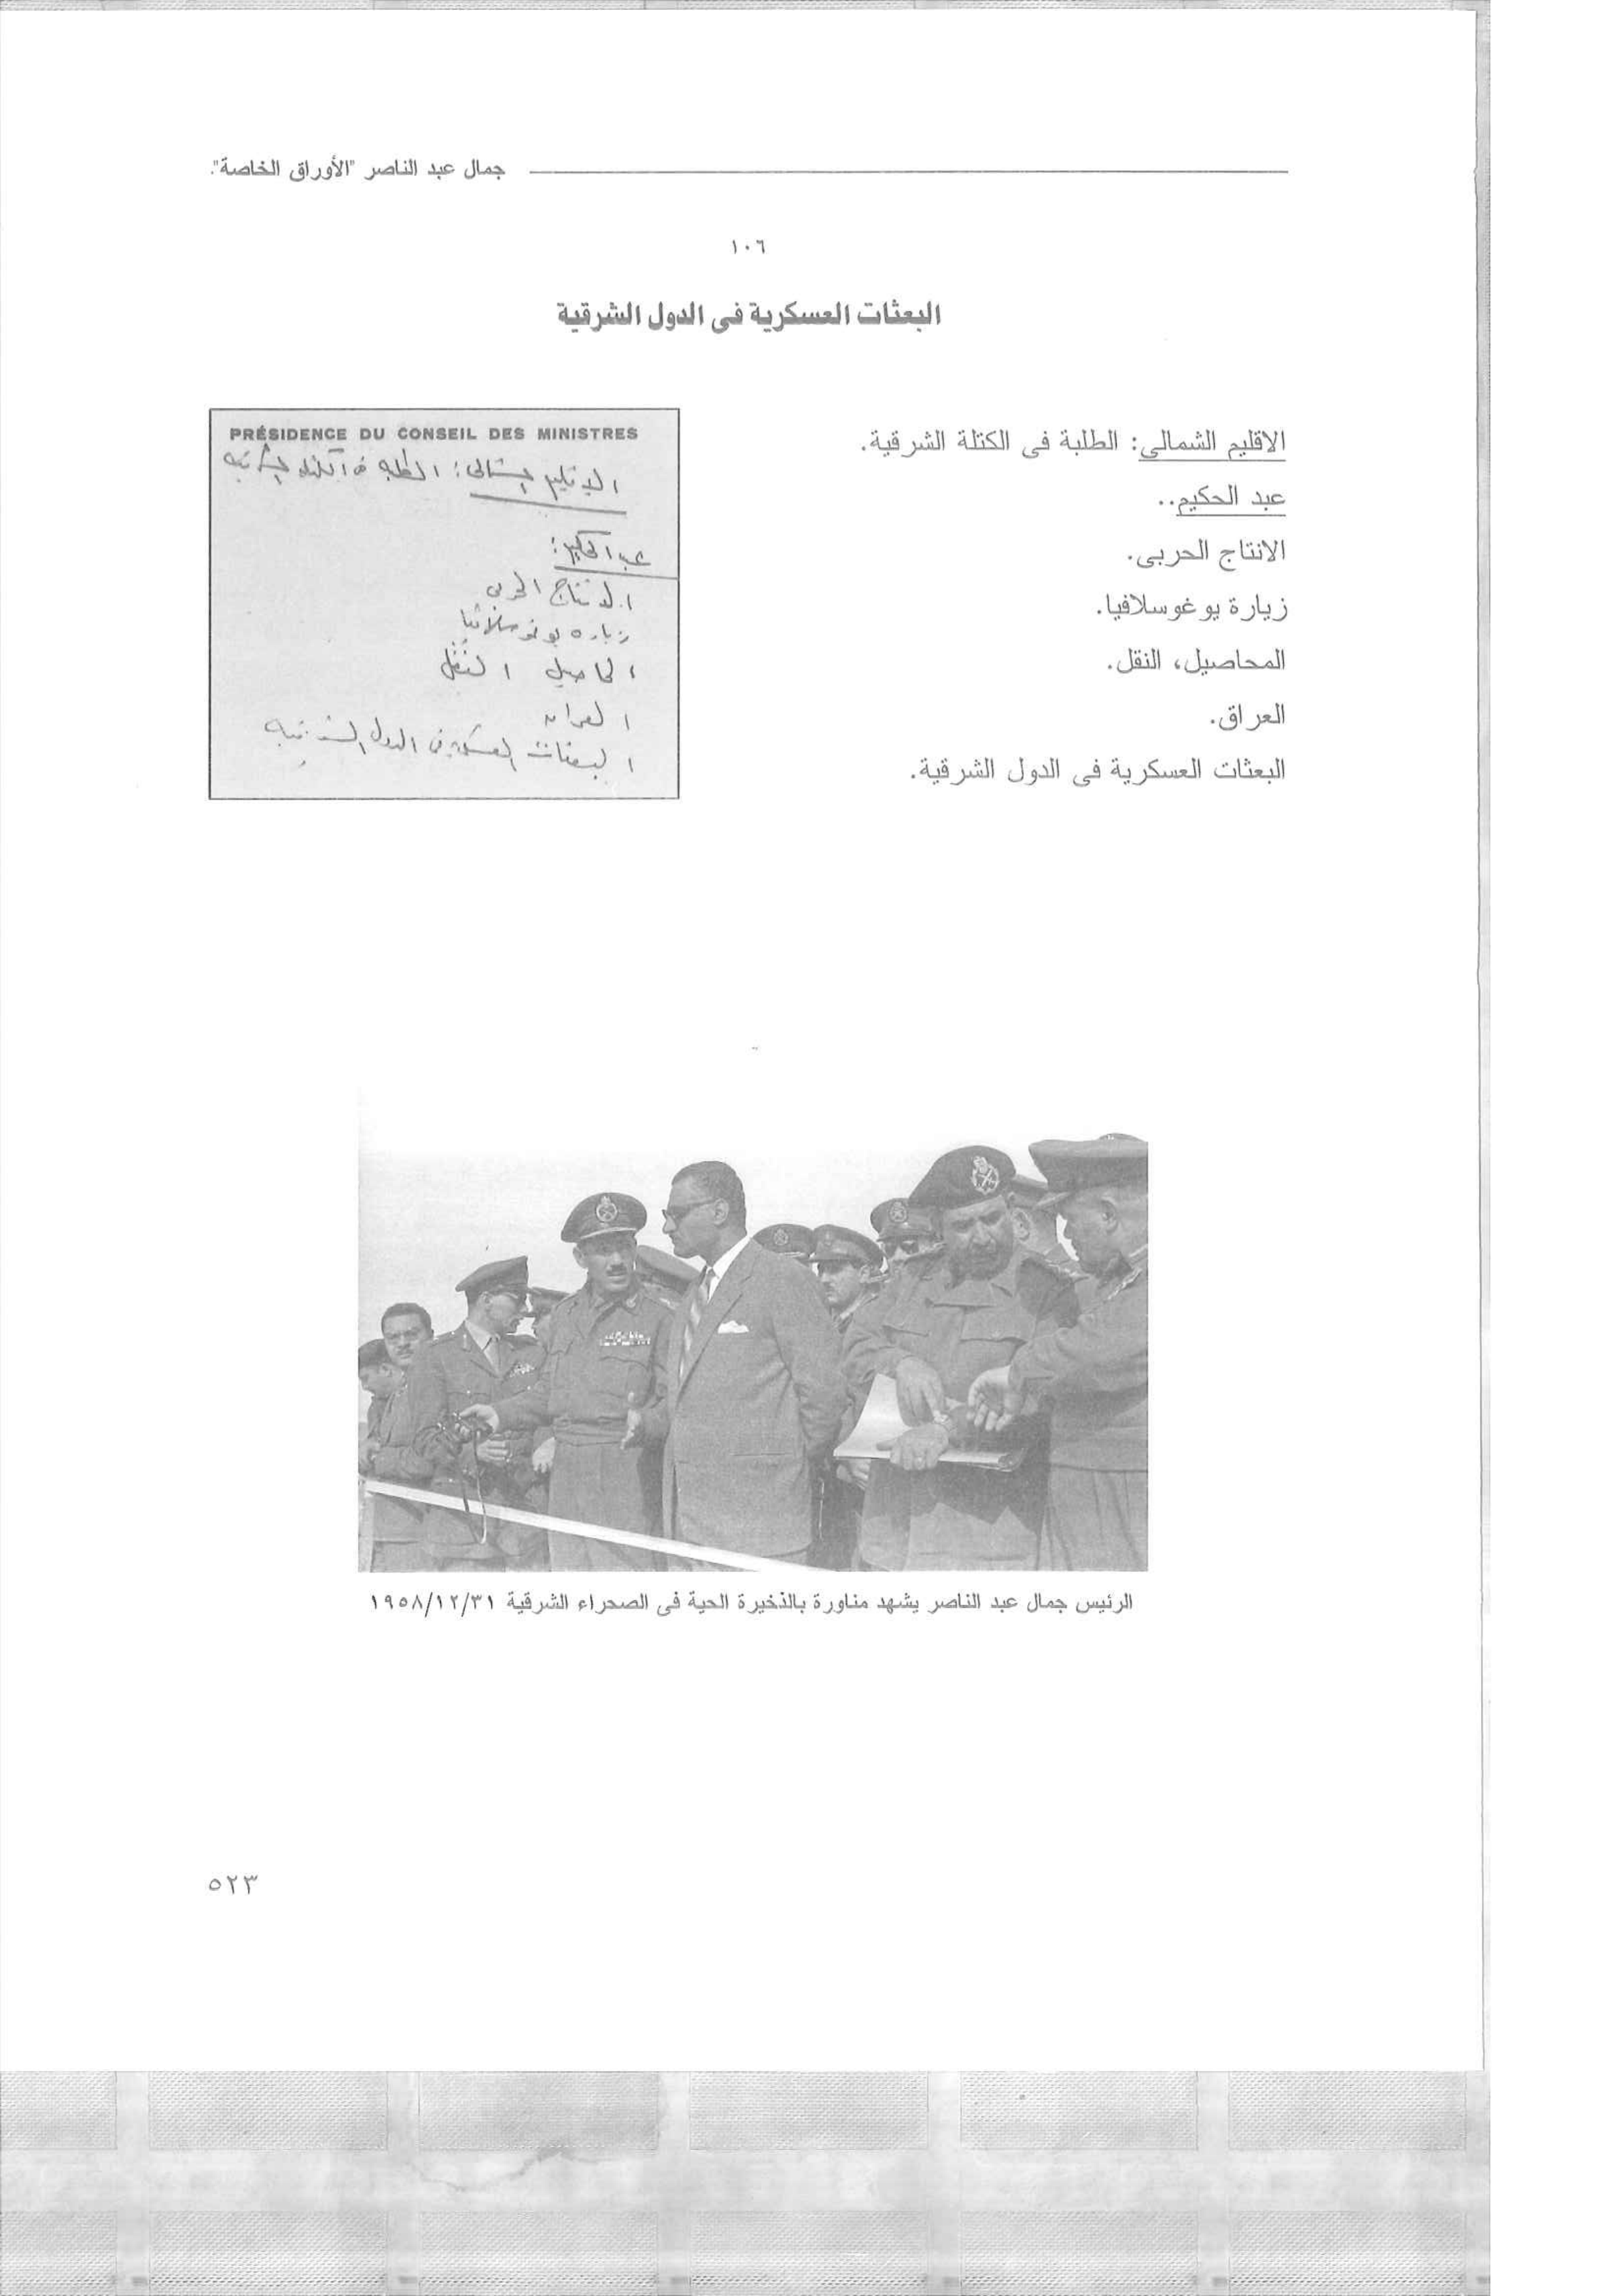 جمال عبد الناصر "الأوراق الخاصة".
١٠٦
البعثات العسكرية فى الدول الشرقية
الاقليم الشمالى: الطلبة فى الكتلة الشرقية.
عبد الحكيم..
الانتاج الحربى.
زيارة يوغوسلافيا.
المحاصيل، النقل.
العراق.
البعثات العسكرية فى الدول الشرقية.
PRÉSIDENCE DU CONSEIL DES MINISTRES
الاقليم الشمالى: الطلبه فى الكتله الشرقيه
عبد الحكيم:
الانتاج الحربى
زياره يوغوسلافيا
المحاصيل النقل
العراق
البعثات العسكريه فى الدول الشرقيه
الرئيس جمال عبد الناصر يشهد مناورة بالذخيرة الحية فى الصحراء الشرقية ١٩٥٨/١٢/٣١
٥٢٣